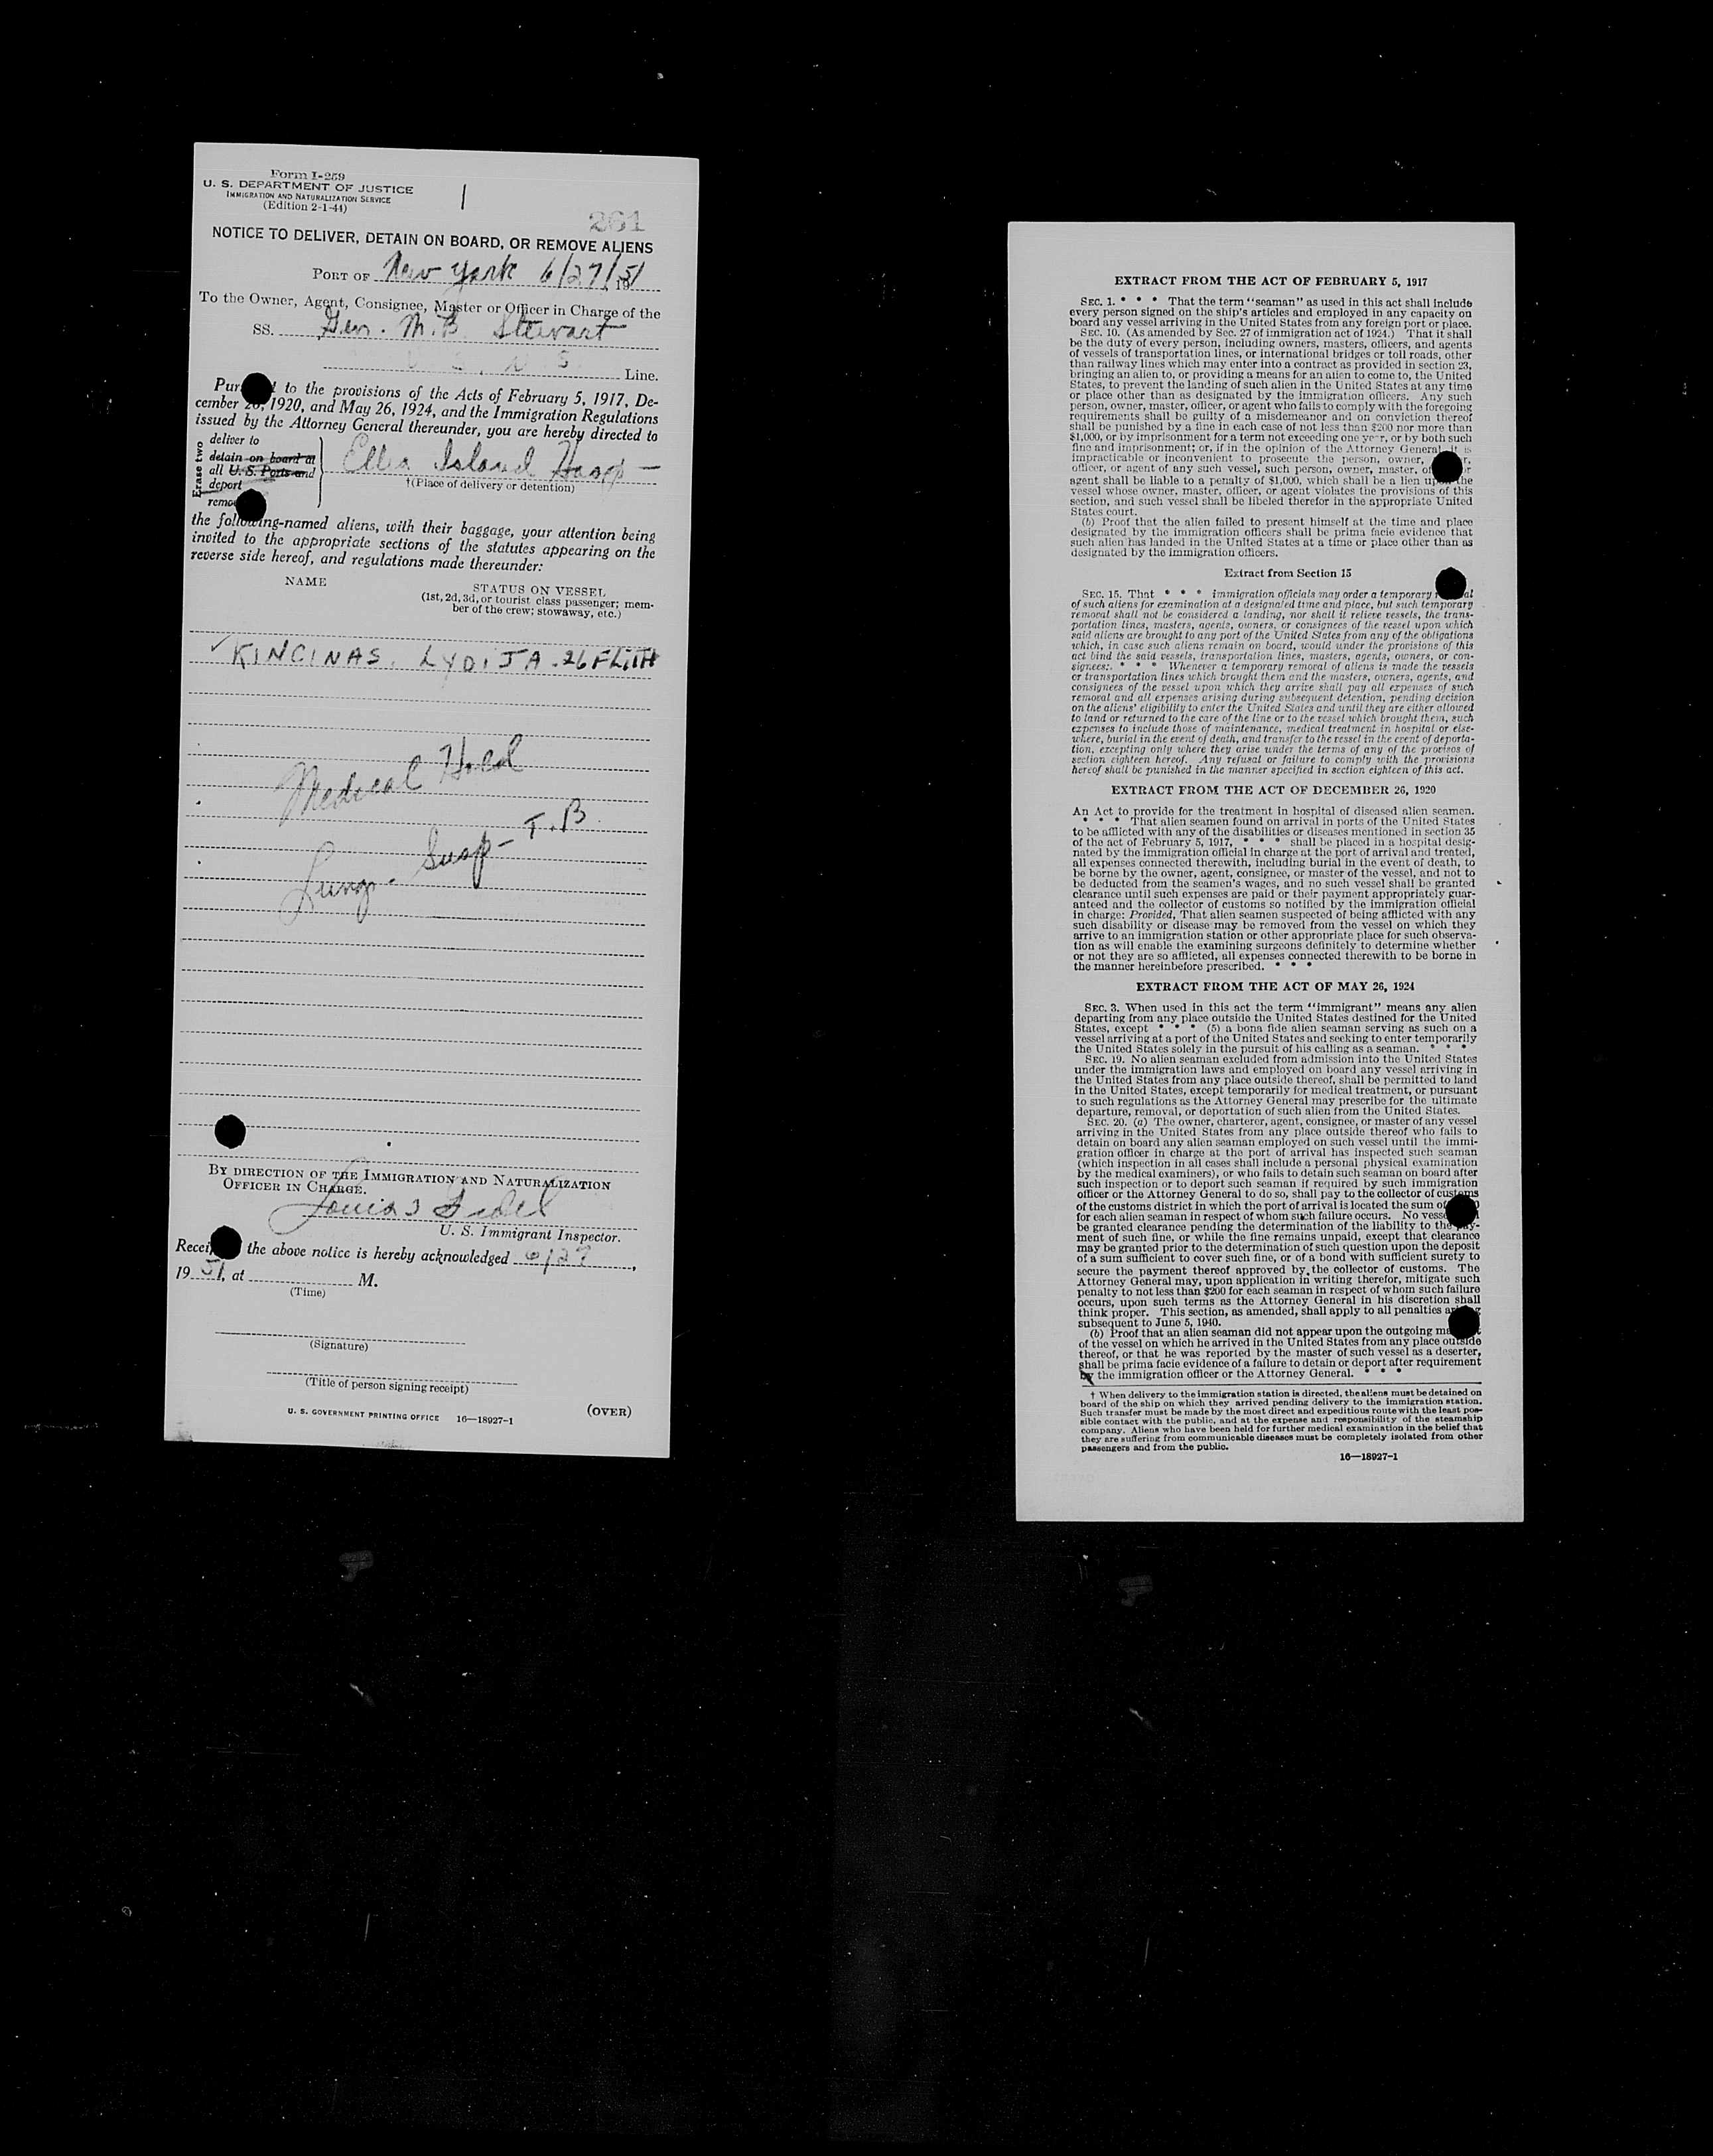 Form I-259
U. S. DEPARTMENT OF JUSTICE
IMMIGRATION AND NATURALIZATION SERVICE
(Edition 2-1-44)
261
NOTICE TO DELIVER, DETAIN ON BOARD, OR REMOVE ALIENS
PORT OF New York 6/27/51
To the Owner, Agent, Consignee, Master or Officer in Charge of the
SS. Gen. M.B. Stewart
Line.
to the provisions of the Acts of February 5, 1917, De-
cember 26, 1920, and May 26, 1924, and the Immigration Regulations
issued by the Attorney General thereunder, you are hereby directed to
Erase two
deliver to
detain on board at
all U.S. Ports and
deport
Ellis Island Hosp-
†(Place of delivery or detention)
the following-named aliens, with their baggage, your attention being
invited to the appropriate sections of the statutes appearing on the
reverse side hereof, and regulations made thereunder:
NAME
STATUS ON VESSEL
(1st, 2d, 3d, or tourist class passenger; mem-
ber of the crew; stowaway, etc.)
✓ KINCINAS. LYDIJA. 26 F LITH
Medical Hold
Lung. Susp- T.B
BY DIRECTION OF THE IMMIGRATION AND NATURALIZATION
OFFICER IN CHARGE.
Louis
U. S. Immigrant Inspector.
the above notice is hereby acknowledged 6/27,
1951, at M.
(Time)
(Signature)
(Title of person signing receipt)
U. S. GOVERNMENT PRINTING OFFICE 16—18927-1
(OVER)
EXTRACT FROM THE ACT OF FEBRUARY 5, 1917
SEC. 1. * * * That the term "seaman" as used in this act shall include
every person signed on the ship's articles and employed in any capacity on
board any vessel arriving in the United States from any foreign port or place.
SEC. 10. (As amended by Sec. 27 of immigration act of 1924.) That it shall
be the duty of every person, including owners, masters, officers, and agents
of vessels of transportation lines, or international bridges or toll roads, other
than railway lines which may enter into a contract as provided in section 23,
bringing an alien to, or providing a means for an alien to come to, the United
States, to prevent the landing of such alien in the United States at any time
or place other than as designated by the immigration officers. Any such
person, owner, master, officer, or agent who fails to comply with the foregoing
requirements shall be guilty of a misdemeanor and on conviction thereof
shall be punished by a fine in each case of not less than $200 nor more than
$1,000, or by imprisonment for a term not exceeding one year, or by both such
fine and imprisonment; or, if in the opinion of the Attorney General it is
impracticable or inconvenient to prosecute the person, owner,
officer, or agent of any such vessel, such person, owner, master,
agent shall be liable to a penalty of $1,000, which shall be a lien upon the
vessel whose owner, master, officer, or agent violates the provisions of this
section, and such vessel shall be libeled therefor in the appropriate United
States court.
(b) Proof that the alien failed to present himself at the time and place
designated by the immigration officers shall be prima facie evidence that
such alien has landed in the United States at a time or place other than as
designated by the immigration officers.
Extract from Section 15
SEC. 15. That * * * immigration officials may order a temporary
of such aliens for examination at a designated time and place, but such temporary
removal shall not be considered a landing, nor shall it relieve vessels, the trans-
portation lines, masters, agents, owners, or consignees of the vessel upon which
said aliens are brought to any port of the United States from any of the obligations
which, in case such aliens remain on board, would under the provisions of this
act bind the said vessels, transportation lines, masters, agents, owners, or con-
signees: * * * Whenever a temporary removal of aliens is made the vessels
or transportation lines which brought them and the masters, owners, agents, and
consignees of the vessel upon which they arrive shall pay all expenses of such
removal and all expenses arising during subsequent detention, pending decision
on the aliens' eligibility to enter the United States and until they are either allowed
to land or returned to the care of the line or to the vessel which brought them, such
expenses to include those of maintenance, medical treatment in hospital or else-
where, burial in the event of death, and transfer to the vessel in the event of deporta-
tion, excepting only where they arise under the terms of any of the provisos of
section eighteen hereof. Any refusal or failure to comply with the provisions
hereof shall be punished in the manner specified in section eighteen of this act.
EXTRACT FROM THE ACT OF DECEMBER 26, 1920
An Act to provide for the treatment in hospital of diseased alien seamen.
* * * That alien seamen found on arrival in ports of the United States
to be afflicted with any of the disabilities or diseases mentioned in section 35
of the act of February 5, 1917, * * * shall be placed in a hospital desig-
nated by the immigration official in charge at the port of arrival and treated,
all expenses connected therewith, including burial in the event of death, to
be borne by the owner, agent, consignee, or master of the vessel, and not to
be deducted from the seamen's wages, and no such vessel shall be granted
clearance until such expenses are paid or their payment appropriately guar-
anteed and the collector of customs so notified by the immigration official
in charge: Provided, That alien seamen suspected of being afflicted with any
such disability or disease may be removed from the vessel on which they
arrive to an immigration station or other appropriate place for such observa-
tion as will enable the examining surgeons definitely to determine whether
or not they are so afflicted, all expenses connected therewith to be borne in
the manner hereinbefore prescribed. * * *
EXTRACT FROM THE ACT OF MAY 26, 1924
SEC. 3. When used in this act the term "immigrant" means any alien
departing from any place outside the United States destined for the United
States, except * * * (5) a bona fide alien seaman serving as such on a
vessel arriving at a port of the United States and seeking to enter temporarily
the United States solely in the pursuit of his calling as a seaman. * * *
SEC. 19. No alien seaman excluded from admission into the United States
under the immigration laws and employed on board any vessel arriving in
the United States from any place outside thereof, shall be permitted to land
in the United States, except temporarily for medical treatment, or pursuant
to such regulations as the Attorney General may prescribe for the ultimate
departure, removal, or deportation of such alien from the United States.
SEC. 20. (a) The owner, charterer, agent, consignee, or master of any vessel
arriving in the United States from any place outside thereof who fails to
detain on board any alien seaman employed on such vessel until the immi-
gration officer in charge at the port of arrival has inspected such seaman
(which inspection in all cases shall include a personal physical examination
by the medical examiners), or who fails to detain such seaman on board after
such inspection or to deport such seaman if required by such immigration
officer or the Attorney General to do so, shall pay to the collector of customs
of the customs district in which the port of arrival is located the sum of
for each alien seaman in respect of whom such failure occurs. No
be granted clearance pending the determination of the liability to the pay-
ment of such fine, or while the fine remains unpaid, except that clearance
may be granted prior to the determination of such question upon the deposit
of a sum sufficient to cover such fine, or of a bond with sufficient surety to
secure the payment thereof approved by the collector of customs. The
Attorney General may, upon application in writing therefor, mitigate such
penalty to not less than $200 for each seaman in respect of whom such failure
occurs, upon such terms as the Attorney General in his discretion shall
think proper. This section, as amended, shall apply to all penalties
subsequent to June 5, 1940.
(b) Proof that an alien seaman did not appear upon the outgoing
of the vessel on which he arrived in the United States from any place outside
thereof, or that he was reported by the master of such vessel as a deserter,
shall be prima facie evidence of a failure to detain or deport after requirement
by the immigration officer or the Attorney General. * * *
† When delivery to the immigration station is directed, the aliens must be detained on
board of the ship on which they arrived pending delivery to the immigration station.
Such transfer must be made by the most direct and expeditious route with the least pos-
sible contact with the public, and at the expense and responsibility of the steamship
company. Aliens who have been held for further medical examination in the belief that
they are suffering from communicable diseases must be completely isolated from other
passengers and from the public.
16—18927-1